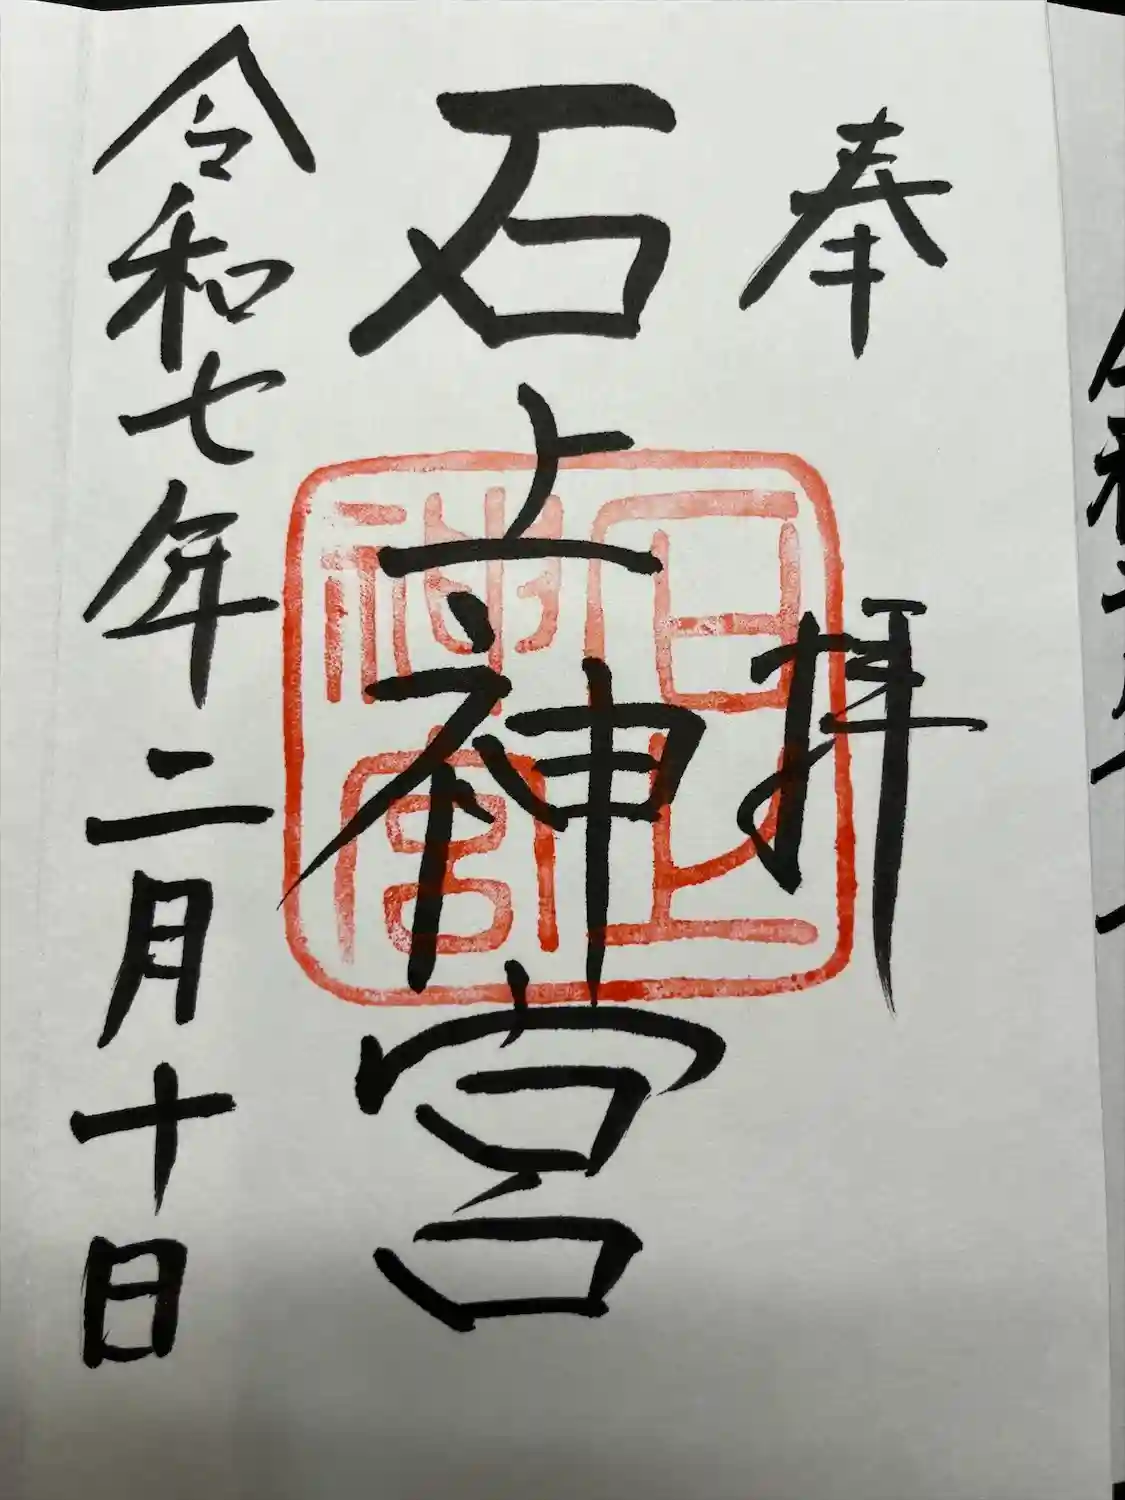 奉拝
石上神宮
石上神宮
令和七年二月十日